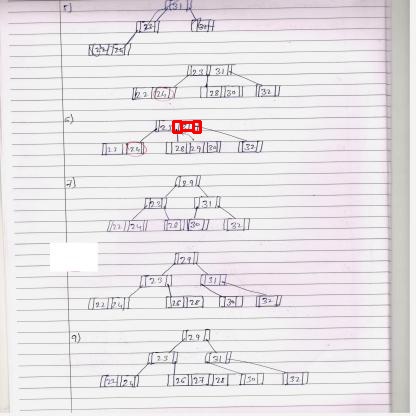 5)
31
23 30
22 24
23 31
22 24 28 30 32
6)
22 24 28 29 30 32
7)
29
23 31
22 24 28 30 32
29
23 31
22 24 26 28 30 32
9)
29
23 31
22 24 26 27 28 30 32